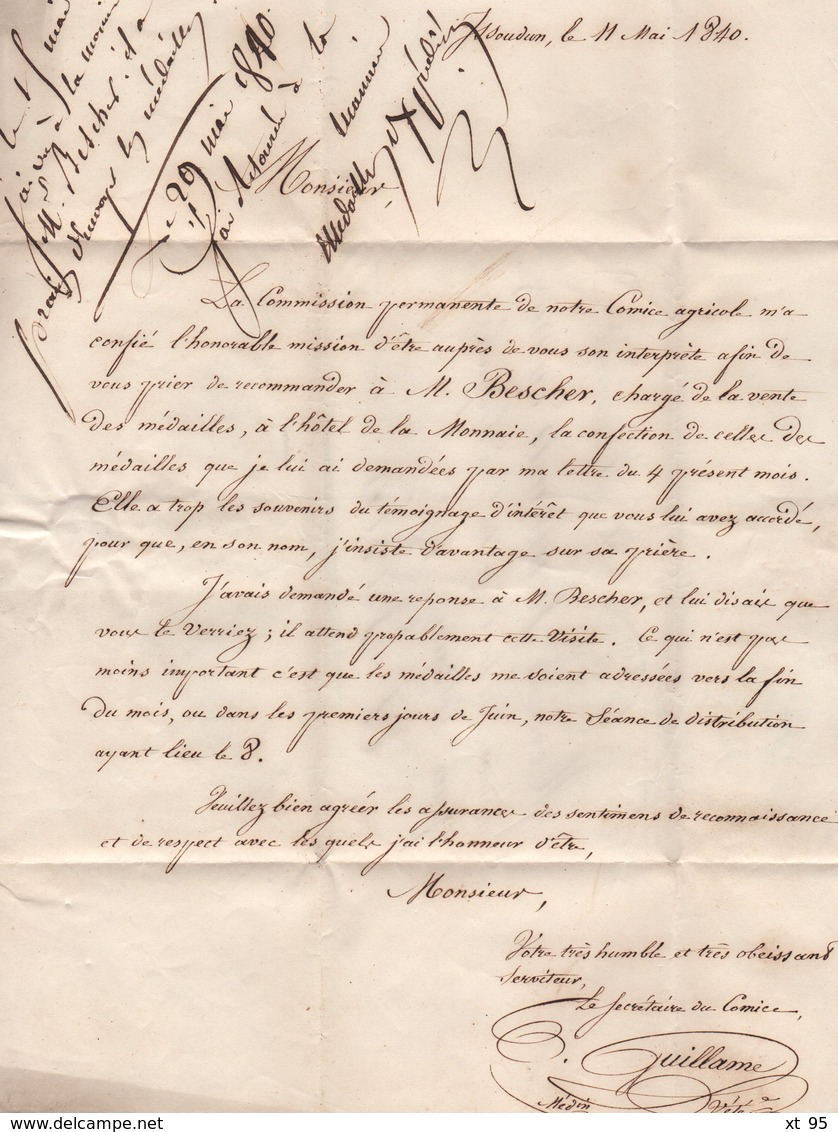 Issoudun, le 11 Mai 1840.
le 1 mai
j'ai vu à la monn
M. Bescher. il a
d'envoyer les médailles
Le 29 mai 1840.
il
j'ai retourné à la
monnaie
médailles
Monsieur,
La Commission permanente de notre Comice agricole m'a
confié l'honorable mission d'être auprès de vous son interprète afin de
vous prier de recommander à M. Bescher, chargé de la vente
des médailles, à l'hôtel de la Monnaie, la confection de celles des
médailles que je lui ai demandées par ma lettre du 4 présent mois.
Elle a trop les souvenirs du témoignage d'intérêt que vous lui avez accordé,
pour que, en son nom, j'insiste davantage sur sa prière.
J'avais demandé une reponse à M. Bescher, et lui disais que
vous le verriez ; il attend propablement cette visite. Ce qui n'est pas
moins important c'est que les médailles me soient adressées vers la fin
du mois, ou dans les premiers jours de Juin, notre Séance de distribution
ayant lieu le 8.
Veuillez bien agréér les assurances des sentimens de reconnaissance
et de respect avec les quels j'ai l'honneur d'être,
Monsieur,
Votre très humble et très obeissant
Serviteur,
Le Secrétaire du Comice,
Guillame
Médin Vété
xt 95